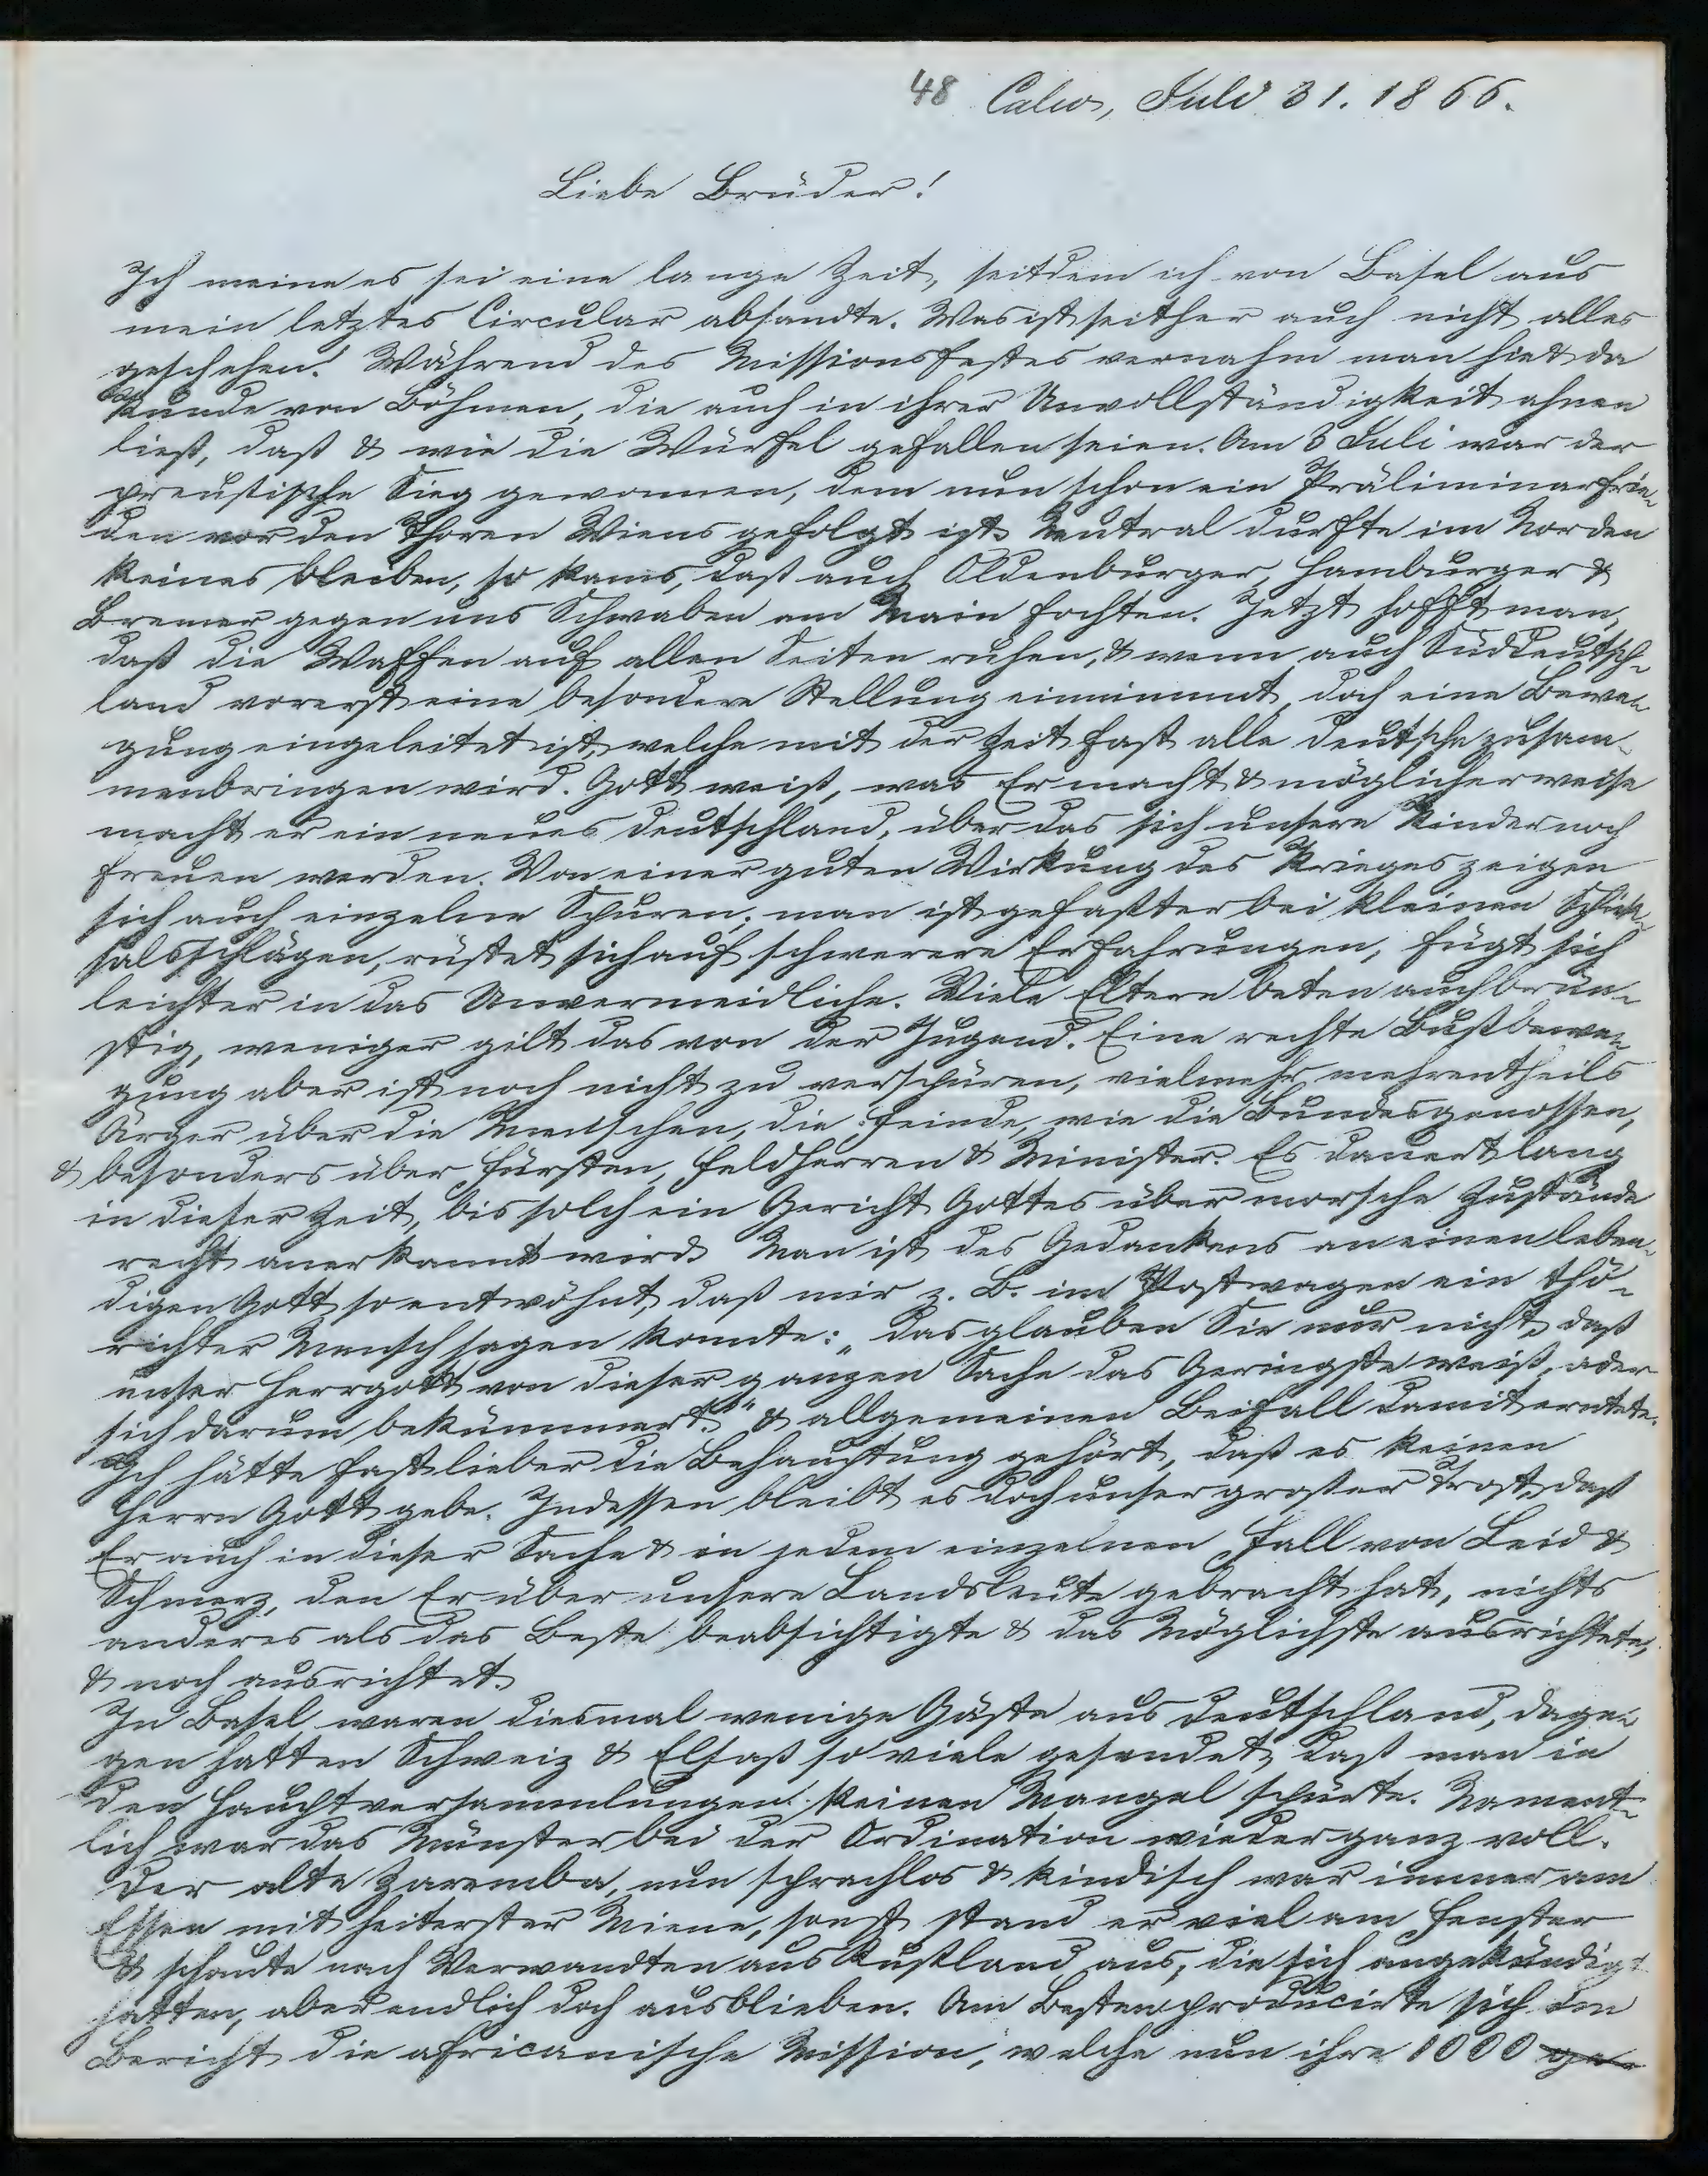 48 Calw, Juli 31. 1866.
Liebe Brüder!
Ich meine es sei eine lange Zeit, seitdem ich von Basel aus
mein letztes Circular absandte. Was ist seither auch nicht alles
geschehen! Während des Missionsfestes vernahm man hie & da
Kunde von Böhmen, die auch in ihrer Unvollständigkeit ahnen
ließ, daß & wie die Würfel gefallen seien. Am 3 Juli war der
preußische Sieg gewonnen, dem nun schon ein Präliminarfrie-
den vor den Thoren Wiens gefolgt ist. Neutral durfte im Norden
keines bleiben, so kams, daß auch Oldenburger, Hamburger &
Bremer gegen uns Schwaben am Main fochten. Jetzt hofft man,
daß die Waffen auf allen Seiten ruhen, & wenn auch Süddeutsch-
land vorerst eine besondere Stellung einnimmt, doch eine Bewe-
gung eingeleitet ist, welche mit der Zeit fast alle Deutsche zusam-
menbringen wird. Gott weiß, was Er macht & möglicherweise
macht er ein neues Deutschland, über das sich unsere Kinder noch
freuen werden. Von einer guten Wirkung des Krieges zeigen
sich auch einzelne Spuren; man ist gefaßter bei kleinen Schick-
salsschlägen, rüstet sich auf schwerere Erfahrungen, fügt sich
leichter in das Unvermeidliche. Viele Eltern beten auch brün-
stig, weniger gilt das von der Jugend. Eine rechte Bußbewe-
gung aber ist noch nicht zu verspüren, vielmehr mehrentheils
Ärger über die Menschen, die Feinde, wie die Bundesgenossen,
& besonders über Fürsten, Feldherren & Minister. Es dauert lang
in dieser Zeit, bis solch ein Gericht Gottes über morsche Zustände
recht anerkannt wird. Man ist des Gedankens an einen leben-
digen Gott so entwöhnt, daß mir z. B. im Postwagen ein thö-
richter Mensch sagen konnte: „das glauben Sie nur nicht, daß
unser Herrgott von dieser ganzen Sache das Geringste weiß, oder
sich darum bekümmert." & allgemeinen Beifall damit erntete.
Ich hätte fast lieber die Behauptung gehört, daß es keinen
Herrn Gott gebe. Indessen bleibt es doch unser großer Trost, daß
Er auch in dieser Sache & in jedem einzelnen Fall von Leid &
Schmerz, den Er über unsere Landsleute gebracht hat, nichts
anderes als das Beste beabsichtigte & das Möglichste ausrichtete,
& noch ausrichtet.
In Basel waren diesmal wenige Gäste aus Deutschland, dage-
gen hatten Schweiz & Elsaß so viele gesendet, daß man in
den Hauptversammlungen keinen Mangel spürte. Nament-
lich war das Münster bei der Ordination wieder ganz voll.
Der alte Zaremba, nun sprachlos & kindisch war immer am
Essen mit heiterster Miene, sonst stand er viel am Fenster
& schaute nach Verwandten aus Rußland aus, die sich angekündigt
hatten, aber endlich doch ausblieben. Am Besten producirte sich im
Bericht die africanische Mission, welche nun ihre 1000 ge-